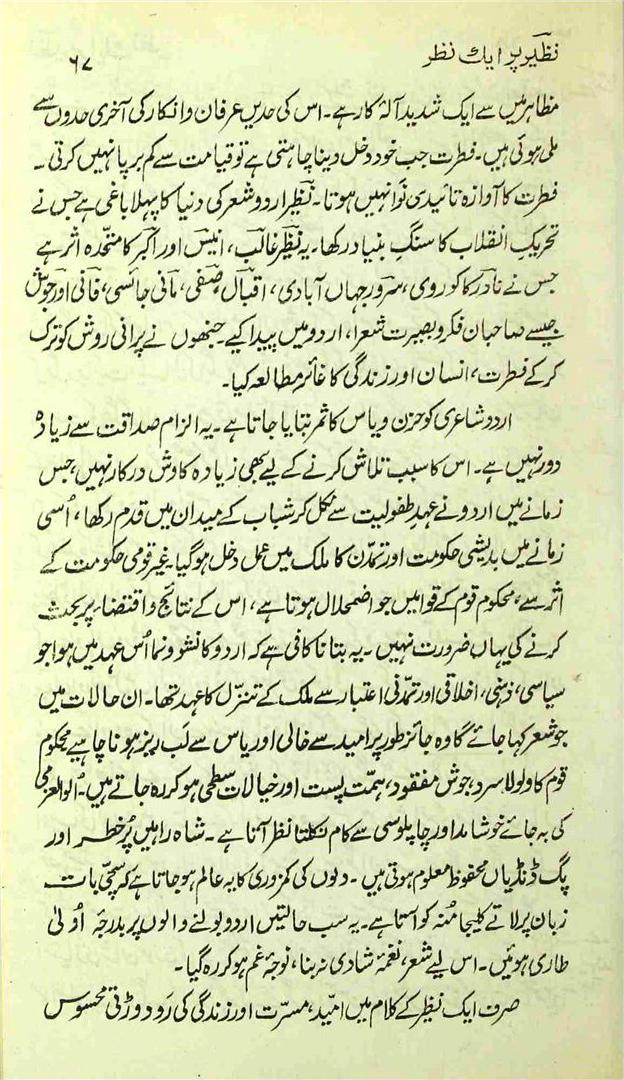 نظیر پر ایک نظر
۶۷
مظاہر میں سے ایک شدید آلۂ کار ہے۔ اس کی حدیں عرفان و انکار کی آخری حدوں سے
ملی ہوئی ہیں۔ فطرت جب خود دخل دینا چاہتی ہے تو قیامت سے کم برپا نہیں کرتی۔
فطرت کا آوازہ تائیدی نوا نہیں ہوتا۔ نظیر اردو شعر کی دنیا کا پہلا باغی ہے جس نے
تحریک انقلاب کا سنگِ بنیاد رکھا۔ یہ نظیر، غالب، انیس اور اکبر کا متحدہ اثر ہے
جس نے نادر کاکوروی، سرور جہاں آبادی، اقبال، صفی، مانی جائسی، فانی اور جوش
جیسے صاحبان فکر و بصیرت شعرا، اردو میں پیدا کیے۔ جنھوں نے پرانی روش کو ترک
کر کے فطرت، انسان اور زندگی کا غائر مطالعہ کیا۔
اردو شاعری کو حزن و یاس کا ثمر بتایا جاتا ہے۔ یہ الزام صداقت سے زیادہ
دور نہیں ہے۔ اس کا سبب تلاش کرنے کے لیے بھی زیادہ کاوش درکار نہیں، جس
زمانے میں اردو نے عہدِ طفولیت سے نکل کر شباب کے میدان میں قدم رکھا، اُسی
زمانے میں بدیشی حکومت اور تمدّن کا ملک میں عمل دخل ہو گیا۔ غیر قومی حکومت کے
اثر سے، محکوم قوم کے قوا میں جو اضمحلال ہوتا ہے، اس کے نتائج و اقتضاء پر بحث
کرنے کی یہاں ضرورت نہیں۔ یہ بتانا کافی ہے کہ اردو کا نشوونما اُس عہد میں ہوا جو
سیاسی، ذہنی، اخلاقی اور تمدّنی اعتبار سے ملک کے تنزّل کا عہد تھا۔ ان حالات میں
جو شعر کہا جائے گا وہ جائز طور پر امید سے خالی اور یاس سے لب ریز ہونا چاہیے محکوم
قوم کا ولولا سرد، جوش مفقود، ہمّت پست اور خیالات سطحی ہو کر رہ جاتے ہیں۔ اُلوالعزمی
کی بہ جائے خوشامد اور چاپلوسی سے کام نکلتا نظر آتا ہے۔ شاہ راہیں پُر خطر اور
پگ ڈنڈیاں محفوظ معلوم ہوتی ہیں۔ دلوں کی کمزوری کا یہ عالم ہو جاتا ہے کہ سچّی بات
زبان پر لاتے کلیجا مُنہ کو آتا ہے۔ یہ سب حالتیں اردو بولنے والوں پر بدرجۂ اُولیٰ
طاری ہوئیں۔ اس لیے شعر، نغمۂ شادی نہ بنا، نوحۂ غم ہو کر رہ گیا۔
صرف ایک نظیر کے کلام میں امّید، مسرّت اور زندگی کی رَو دوڑتی محسوس